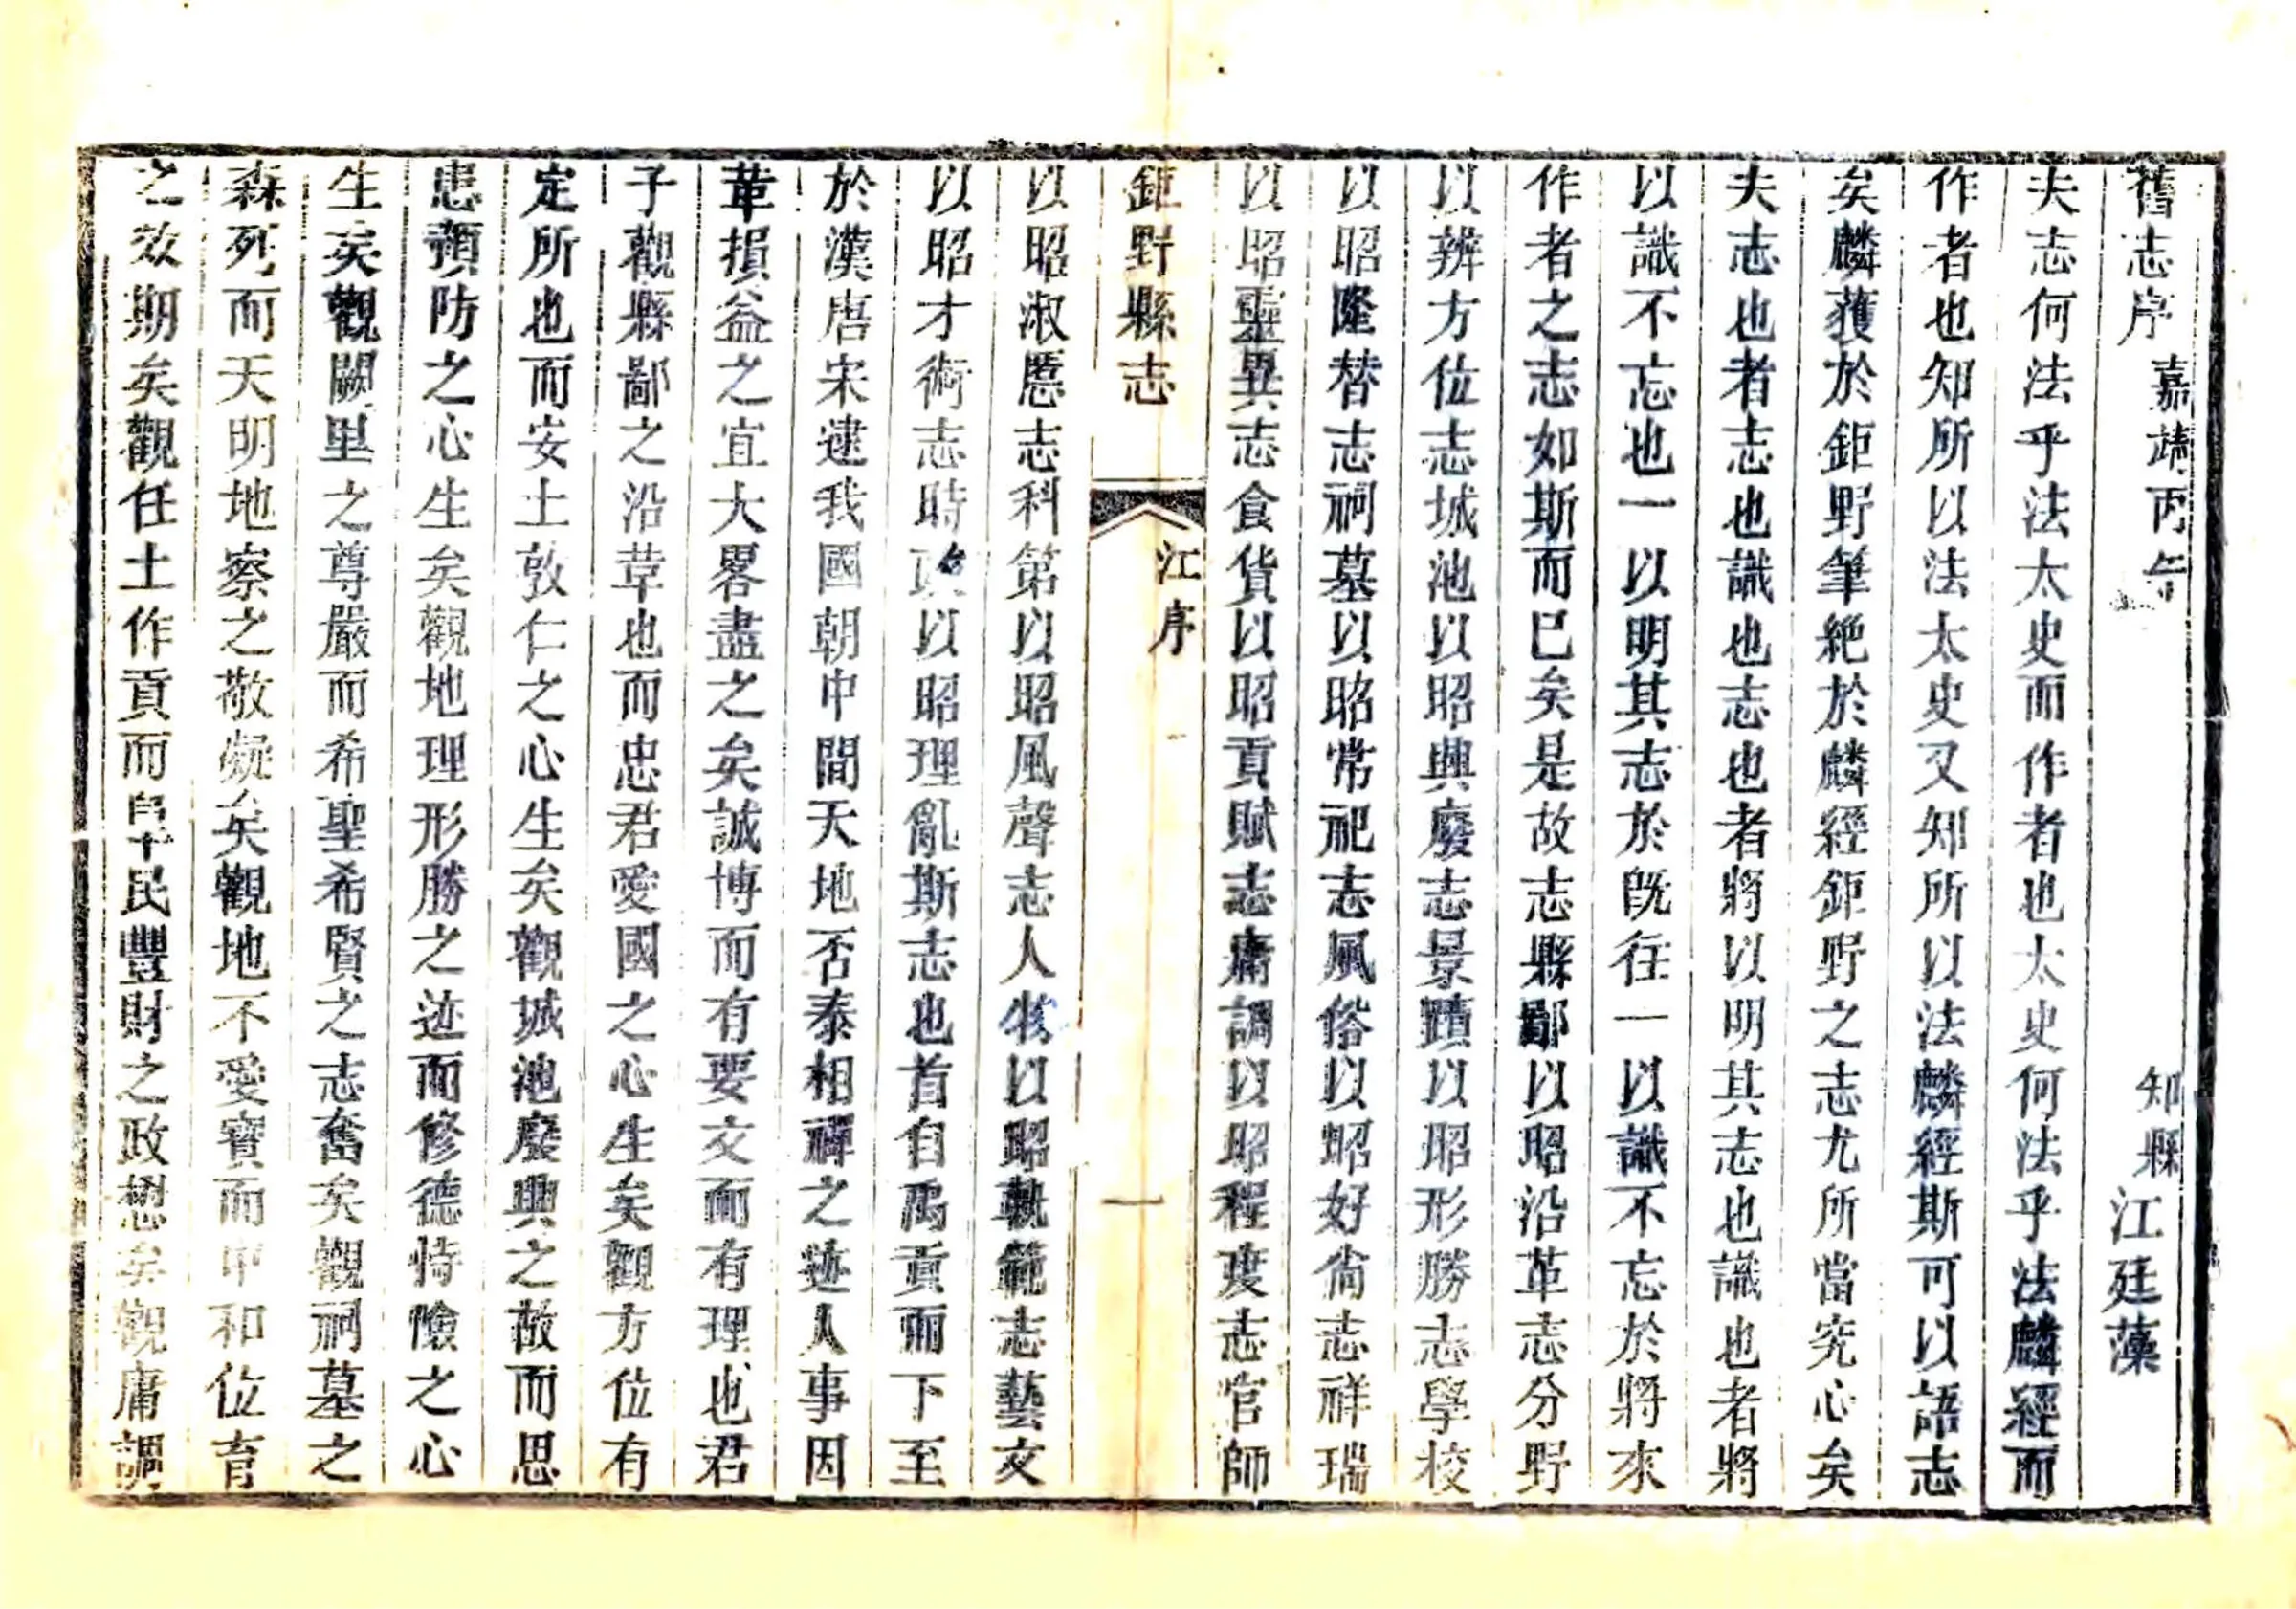 舊志序 嘉靖丙午 知縣江廷藻
夫志何法乎法太史而作者也太史何法乎法麟經而
作者也知所以法太史又知所以法麟經斯可以語志
矣麟獲於鉅野筆絕於麟經鉅野之志尤所當究心矣
夫志也者志也識也志也者將以明其志也識也者將
以識不忘也一以明其志於旣往一以識不忘於將來
作者之志如斯而已矣是故志縣鄙以昭沿革志分野
以辨方位志城池以昭興廢志景蹟以昭形勝志學校
以昭隆替志祠墓以昭常祀志風俗以昭好尚志祥瑞
以昭靈異志食貨以昭貢賦志庸調以昭程度志官師
鉅野縣志 江序 一
以昭淑慝志科第以昭風聲志人物以昭軌範志藝文
以昭才術志時以昭理亂斯志也首自禹貢而下至
於漢唐宋逮我國朝中間天地否泰相禪之迹人事因
革損益之宜大畧盡之矣誠博而有要文而有理也君
子觀縣鄙之沿革也而忠君愛國之心生矣觀方位有
定所也而安土敦仁之心生矣觀城池廢興之故而思
患預防之心生矣觀地理形勝之迹而修德恃險之心
生矣觀闕里之尊嚴而希聖希賢之志奮矣觀祠墓之
森死而天明地察之敬凝矣觀地不愛寶而中和位育
之效期矣觀任土作貢而阜民豐財之政懋矣觀庸調